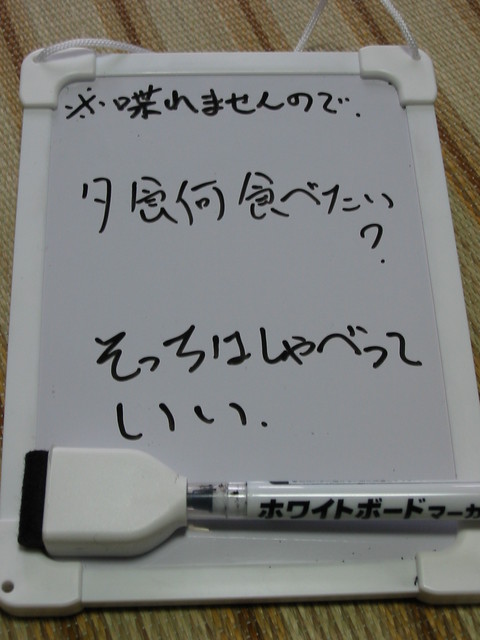 ※喋れませんので.
夕食何食べたい
?
そっちはしゃべって
いい.
ホワイトボードマーカ